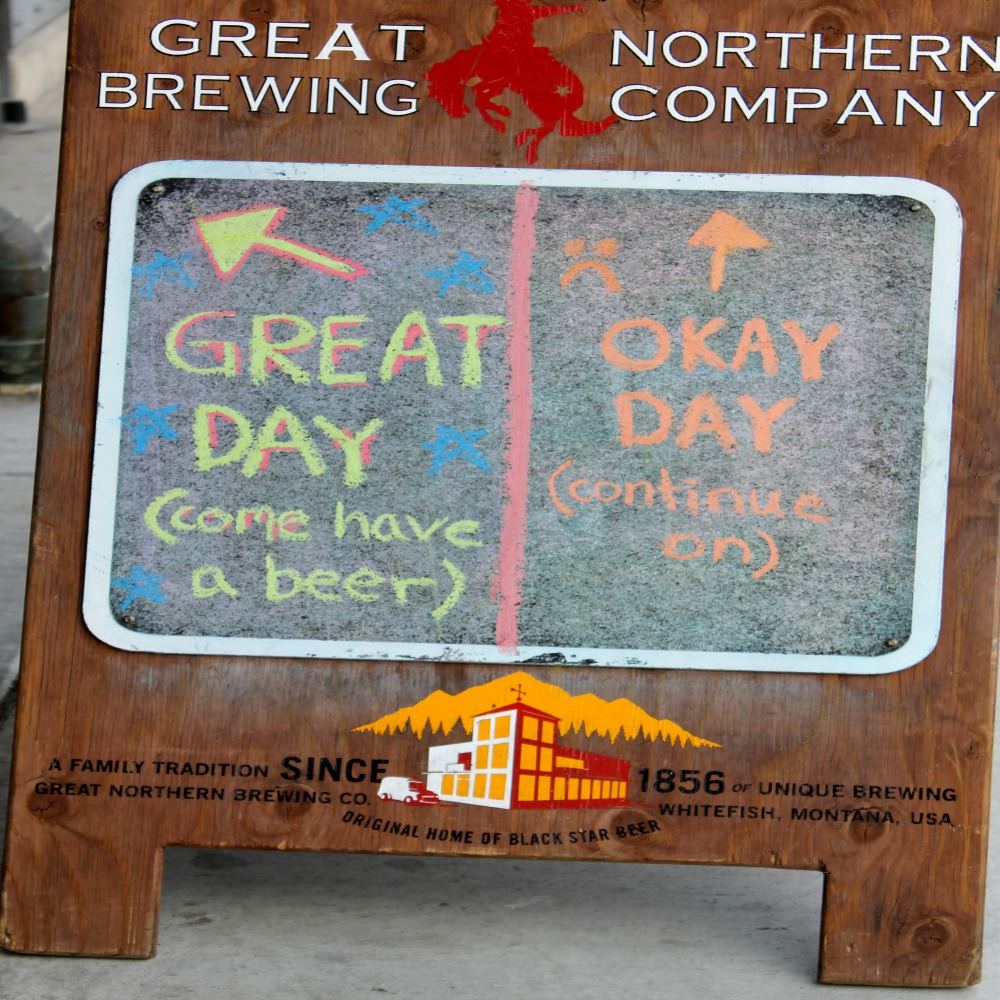 GREAT NORTHERN
BREWING COMPANY
GREAT
DAY
(come have
a beer)
OKAY
DAY
(continue
on)
A FAMILY TRADITION SINCE 1856 OF UNIQUE BREWING
GREAT NORTHERN BREWING CO. WHITEFISH, MONTANA, USA
ORIGINAL HOME OF BLACK STAR BEER